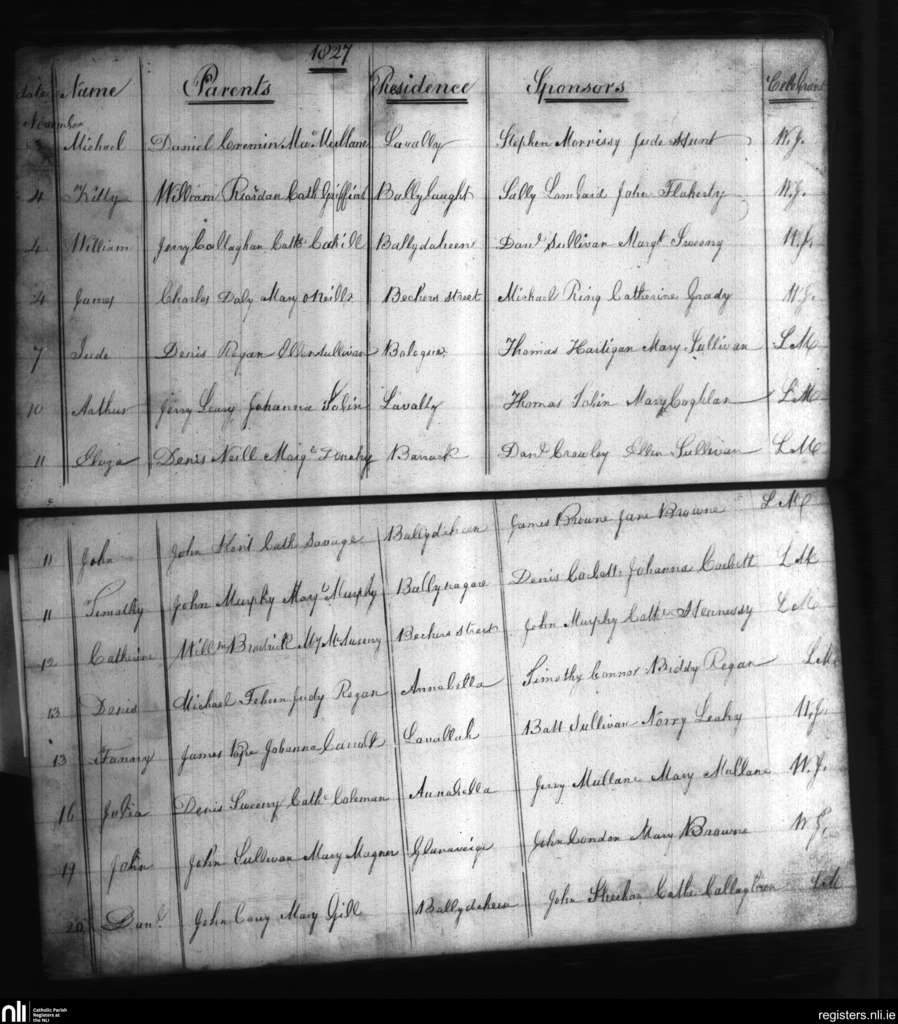 1827
date Name Parents Residence Sponsors
November
3 Michael Daniel Cremin Mullane Lavally Stephen Morrissy Jude Hunt W.J.
4 Kitty William Riordan Cath Griffin Ballylaught Sally Lombard John Flaherty W.J.
4 William Jerry Callaghan Cathe Cahill Ballydaheen Danl Sullivan Margt Sweeny W.J.
4 James Charles Daly Mary oNeill Bechers street Michael Ring Catherine Grady W.J.
7 Jude Denis Regan Ellen Sullivan Thomas Hartigan Mary Sullivan L M
10 Arthur Jerry Leary Johanna Tobin Lavally Thomas Tobin Mary Coghlan L M
11 Eliza Denis Neill Barrack Danl Crowley Ellen Sullivan L M
11 John John Kent Cath Savage Ballydaheen James Browne Jane Browne L M
11 Timothy John Murphy Mary Murphy Denis Corbett Johanna Corbett L M
12 Catherine Willm Brodrick My McSweeny Bechers street John Murphy Cathe Hennessy L M
13 Denis Michael Judy Regan Annabella Timothy Connor Biddy Regan L M
13 Fanny James Pope Johanna Lavallah Batt Sullivan Norry Leahy W.J.
16 Julia Denis Sweeny Cathe Coleman Annabella Jerry Mullane Mary Mullane W.J.
19 John John Sullivan Mary Magner John Condon Mary Browne W.J.
20 Danl John Mary Gill Ballydaheen John Sheehan Cathe Callaghan L M
nli Catholic Parish
Registers at
the NLI
registers.nli.ie